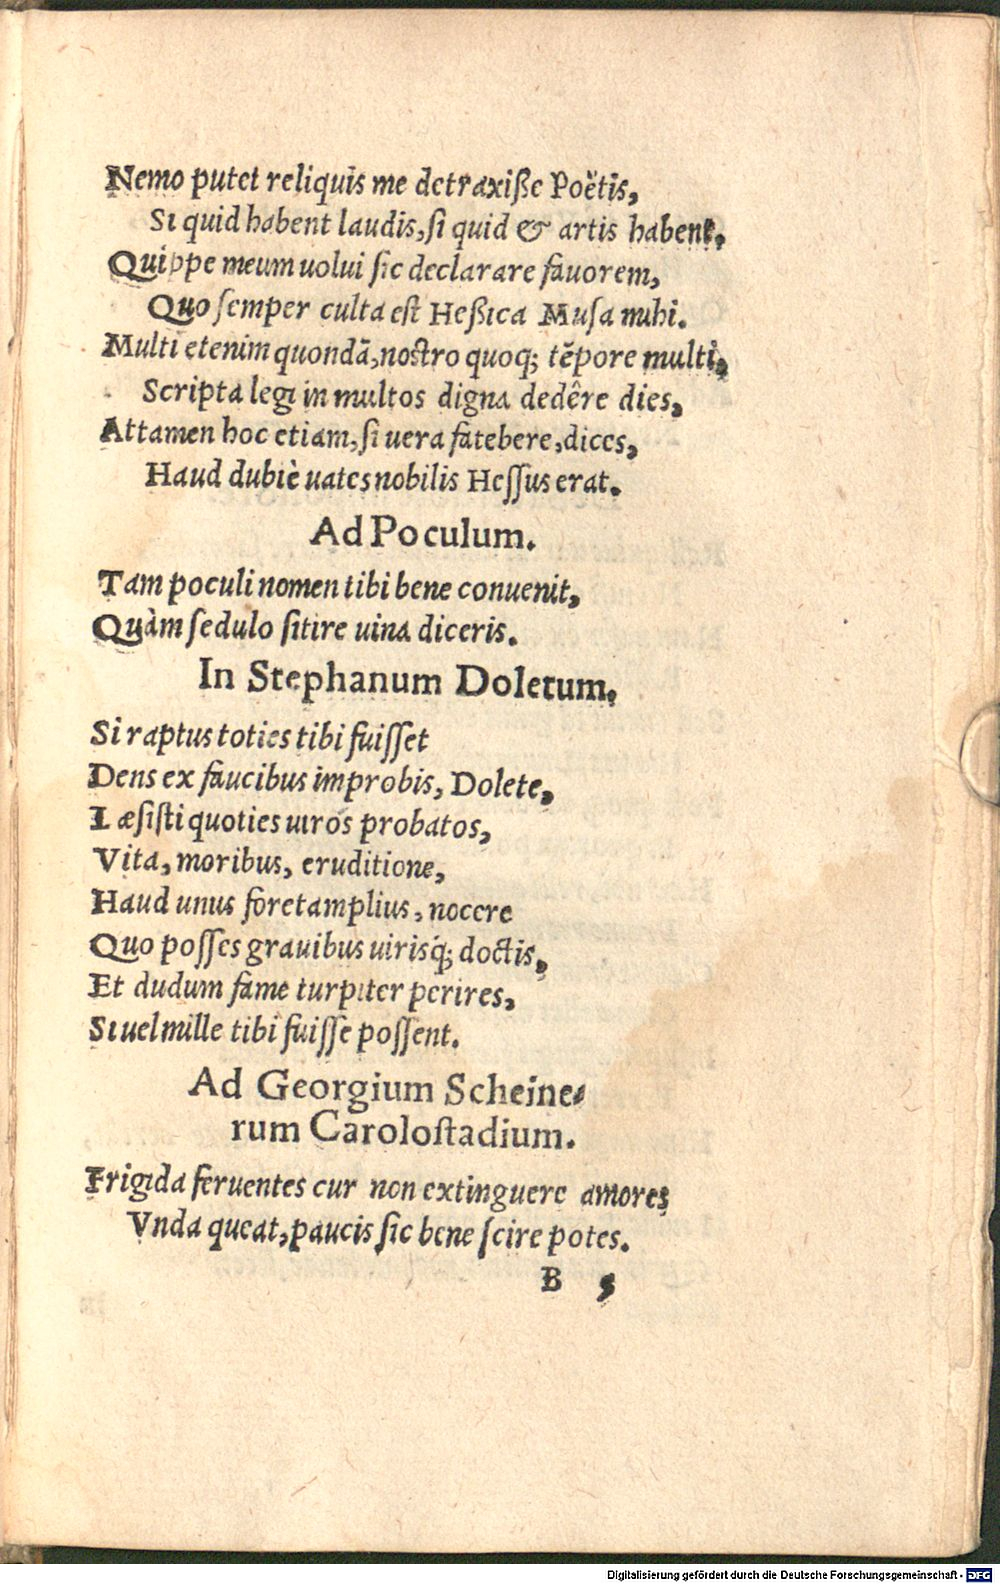 Nemo putet reliquis me detraxiße Poëtis,
Si quid habent laudis, si quid & artis habent.
Quippe meum uolui sic declarare fauorem,
Quo semper culta est Heßica Musa mihi.
Multi etenim quondā, nostro quoq; tēpore multi,
Scripta legi in multos digna dedêre dies,
Attamen hoc etiam, si uera fatebere, dices,
Haud dubiè uates nobilis Hessus erat.
Ad Poculum.
Tam poculi nomen tibi bene conuenit,
Quàm sedulo sitire uina diceris.
In Stephanum Doletum.
Si raptus toties tibi fuisset
Dens ex faucibus improbis, Dolete,
Læsisti quoties uiros probatos,
Vita, moribus, eruditione,
Haud unus foret amplius, nocere
Quo posses grauibus uirisq́; doctis,
Et dudum fame turpiter perires,
Si uel mille tibi fuisse possent.
Ad Georgium Scheine-
rum Carolostadium.
Frigida feruentes cur non extinguere amores
Vnda queat, paucis sic bene scire potes.
B 5
Digitalisierung gefördert durch die Deutsche Forschungsgemeinschaft - DFG